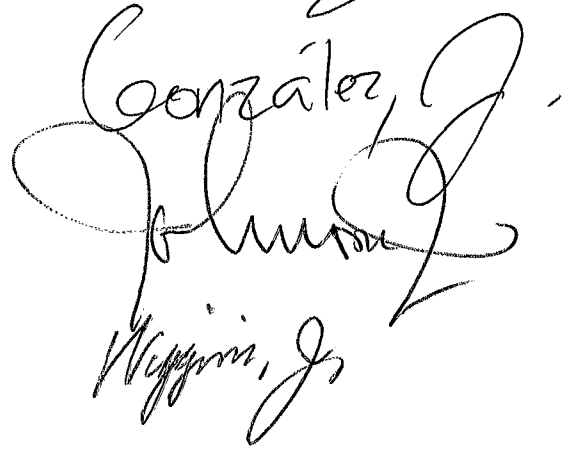 González, J.
Johnson
Wiggins, Jr